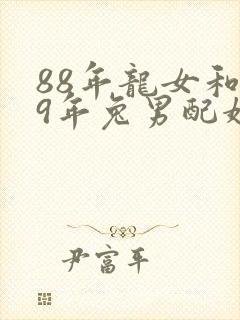 88年龍女和
9年兔男配
尹富平